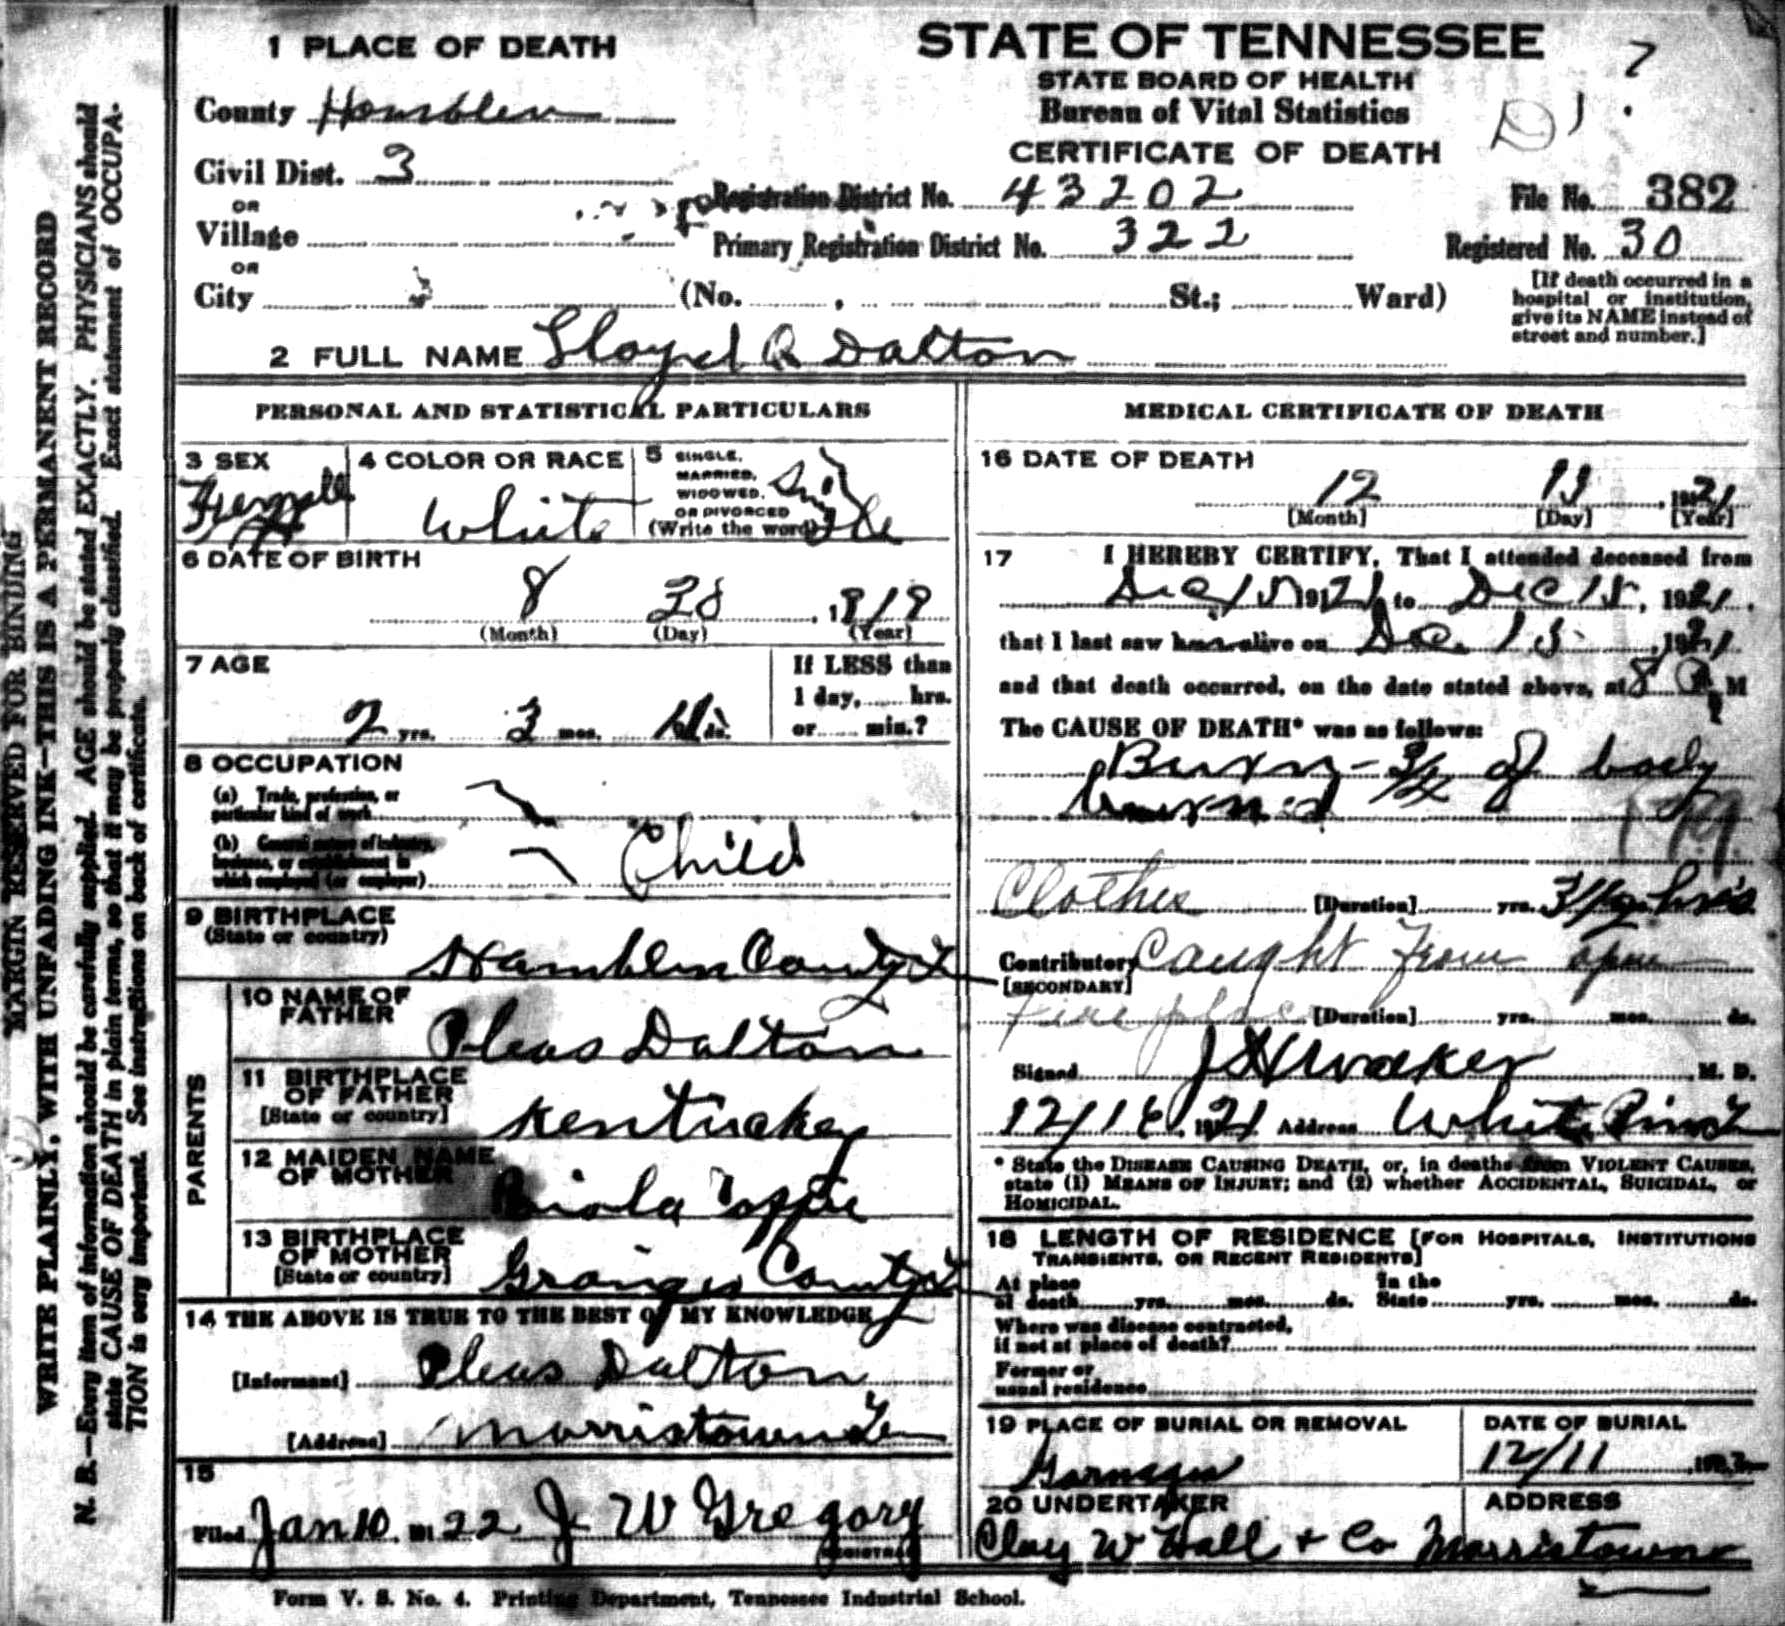 1 PLACE OF DEATH
County Hamblen
Civil Dist. 3
OR
Village
OR
City (No. , St.; Ward)
STATE OF TENNESSEE
STATE BOARD OF HEALTH
Bureau of Vital Statistics
CERTIFICATE OF DEATH
Registration District No. 43202
Primary Registration District No. 322
File No. 382
Registered No. 30
[If death occurred in a
hospital or institution,
give its NAME instead of
street and number.]
2 FULL NAME Lloyd R Dalton
MARGIN RESERVED FOR BINDING
WRITE PLAINLY, WITH UNFADING INK—THIS IS A PERMANENT RECORD
N. B.—Every item of information should be carefully supplied. AGE should be stated EXACTLY. PHYSICIANS should
state CAUSE OF DEATH in plain terms, so that it may be properly classified. Exact statement of OCCUPA-
TION is very important. See instructions on back of certificate.
PERSONAL AND STATISTICAL PARTICULARS
3 SEX
4 COLOR OR RACE White
5 SINGLE,
MARRIED,
WIDOWED,
OR DIVORCED
(Write the word) Single
6 DATE OF BIRTH
8 28, 1919
(Month) (Day) (Year)
7 AGE
2 yrs. 3 mos. ds.
If LESS than
1 day, hrs.
or min.?
8 OCCUPATION
(a) Trade, profession, or
particular kind of work
(b) General nature of industry,
business, or establishment in
which employed (or employer) Child
9 BIRTHPLACE
(State or country) Hamblen County
PARENTS
10 NAME OF
FATHER Pleas Dalton
11 BIRTHPLACE
OF FATHER
[State or country] Kentucky
12 MAIDEN NAME
OF MOTHER
13 BIRTHPLACE
OF MOTHER
[State or country] County
14 THE ABOVE IS TRUE TO THE BEST OF MY KNOWLEDGE
[Informant] Pleas Dalton
[Address] Morristown
15
Filed Jan 10, 1922 J W Gregory
REGISTRAR
MEDICAL CERTIFICATE OF DEATH
16 DATE OF DEATH
12 1921
[Month] [Day] [Year]
17 I HEREBY CERTIFY, That I attended deceased from
Dec 15 1921 to Dec 15, 1921.
that I last saw h alive on Dec. 15 1921
and that death occurred, on the date stated above, at 8 P. M
The CAUSE OF DEATH* was as follows:
Burn - 3/4 of body
burned
179
Clothes [Duration] yrs. hrs
Contributory Caught from open
[SECONDARY]
fire place [Duration] yrs. mos. ds.
Signed J H Walker, M. D.
12/16, 1921 Address White Pine
* State the DISEASE CAUSING DEATH, or, in deaths from VIOLENT CAUSES,
state (1) MEANS OF INJURY; and (2) whether ACCIDENTAL, SUICIDAL, or
HOMICIDAL.
18 LENGTH OF RESIDENCE [FOR HOSPITALS, INSTITUTIONS
TRANSIENTS, OR RECENT RESIDENTS]
At place In the
of death yrs. mos. ds. State yrs. mos. ds.
Where was disease contracted,
if not at place of death?
Former or
usual residence
19 PLACE OF BURIAL OR REMOVAL
DATE OF BURIAL
12/11
20 UNDERTAKER
ADDRESS
Clay W Hall + Co Morristown
Form V. S. No. 4. Printing Department, Tennessee Industrial School.